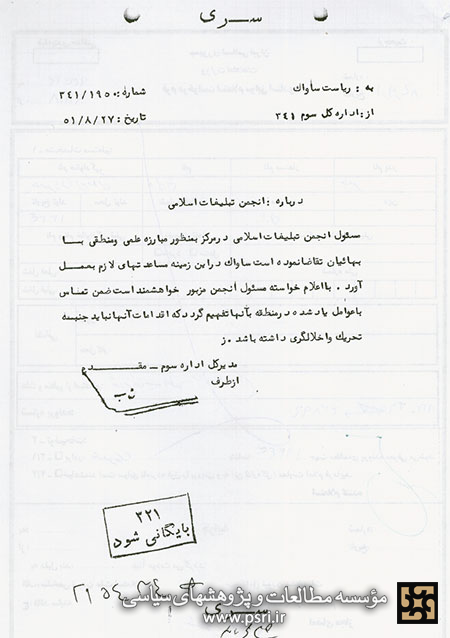 سری
به : ریاست ساواك
شماره: ۳۴۱/۱۹۵۰
از: اداره کل سوم ۳۴۱
تاریخ: ۵۱/۸/۲۷
درباره : انجمن تبلیغات اسلامی
مسئول انجمن تبلیغات اسلامی درمرکز بمنظور مبارزه علمی ومنطقی بــا
بهائیان تقاضانموده است ساواك دراین زمینه مساعدتهای لازم بعمــل
آورد . بااعلام خواسته مسئول انجمن مزبور خواهشمند است ضمن تمــاس
باعوامل یاد شده درمنطقه بآنها تفهیم گردد که اقدامات آنها نباید جنبــه
تحریك واخلالگری داشته باشد . ز
مدیرکل اداره سوم ــ مقــدم
ازطرف
۳۲۱
بایگانی شود
مؤسسه مطالعات و پژوهشهای سیاسی
سری
www.psri.ir